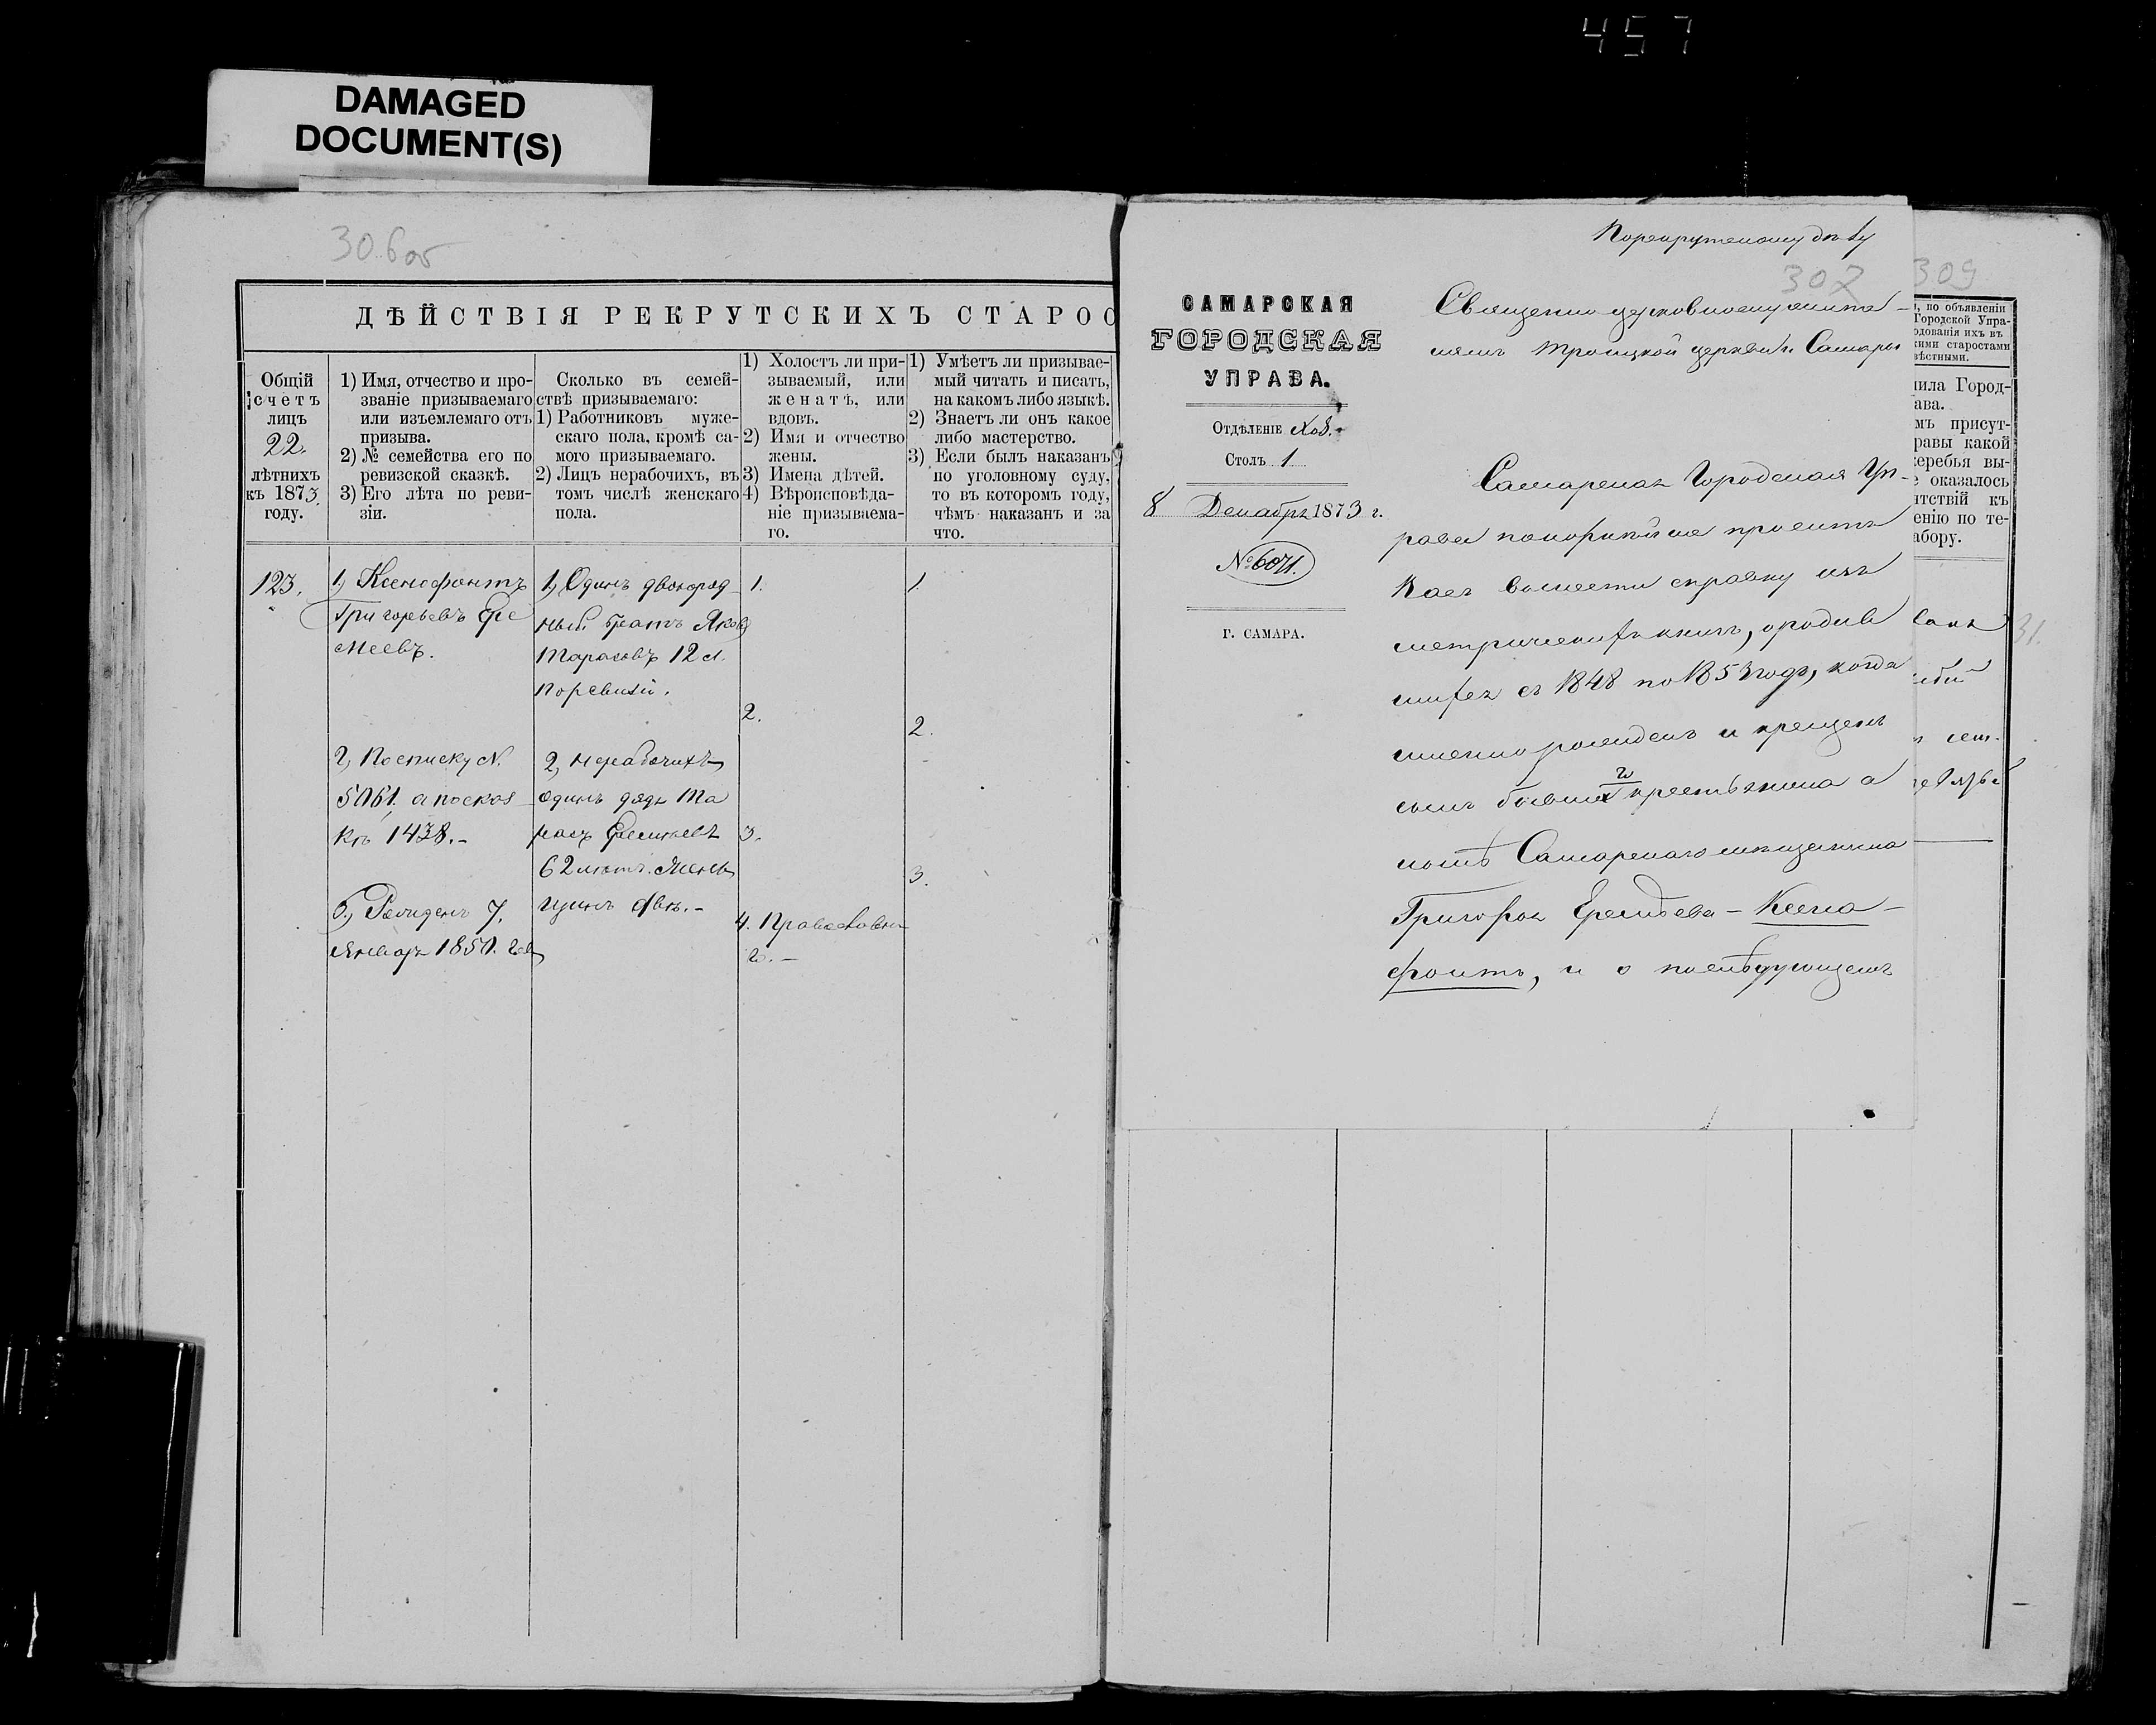 457
DAMAGED
DOCUMENT(S)
306 об
ДѢЙСТВІЯ РЕКРУТСКИХЪ СТАРОС
Общій
счетъ
лицъ
22.
лѣтнихъ
къ 1873
году.
1) Имя, отчество и про-
званіе призываемаго
или изъемлемаго отъ
призыва.
2) № семейства его по
ревизской сказкѣ.
3) Его лѣта по реви-
зіи.
Сколько въ семей-
ствѣ призываемаго:
1) Работниковъ муже-
скаго пола, кромѣ са-
мого призываемаго.
2) Лицъ нерабочихъ, въ
томъ числѣ женскаго
пола.
1) Холостъ ли при-
зываемый, или
женатъ, или
вдовъ.
2) Имя и отчество
жены.
3) Имена дѣтей.
4) Вѣроисповѣда-
ніе призываема-
го.
1) Умѣетъ ли призывае-
мый читать и писать,
на какомъ либо языкѣ.
2) Знаетъ ли онъ какое
либо мастерство.
3) Если былъ наказанъ
по уголовному суду,
то въ которомъ году,
чѣмъ наказанъ и за
что.
123.
1, Ксенофонтъ
Григорьевъ Ере
меевъ.
2, По списку №
5061. а по сказ
кѣ 1438.-
3, Рожденъ 7.
Января 1850. года
1, Одинъ двоюрод
ный братъ Яковъ
Тарасовъ 12 л.
по ревизіи.
2, нерабочихъ
одинъ дядя Та
расъ
62 лѣтъ. Жен
щинъ двѣ.-
1.
2.
3.
4. Православна
го.-
1.
2.
3.
По рекрутскому дѣлу
302
САМАРСКАЯ
ГОРОДСКАЯ
УПРАВА.
Отдѣленіе Хоз.
Столъ 1
8 Декабря 1873 г.
№ 6071.
Г. САМАРА.
Священно церковно служите-
лямъ Троицкой церкви г. Самары
Самарская Городская Уп-
рава покорнѣйше проситъ
Васъ вывести справку изъ
метрическихъ книгъ, о родив
шихся съ 1848 по 1853 годъ, когда
именно рожденъ и крещенъ
сынъ бывшаго крестьянина а
нынѣ Самарскаго мѣщанина
Григорья Еремѣева - Ксено-
фонтъ, и о послѣдующемъ
309
, по объявленіи
Городской Упра-
одованія ихъ въ
кими старостами
вѣстными.
нила Город-
ава.
мъ присут-
равы какой
жеребья вы-
е оказалось
тствій къ
енію по те-
абору.
31.